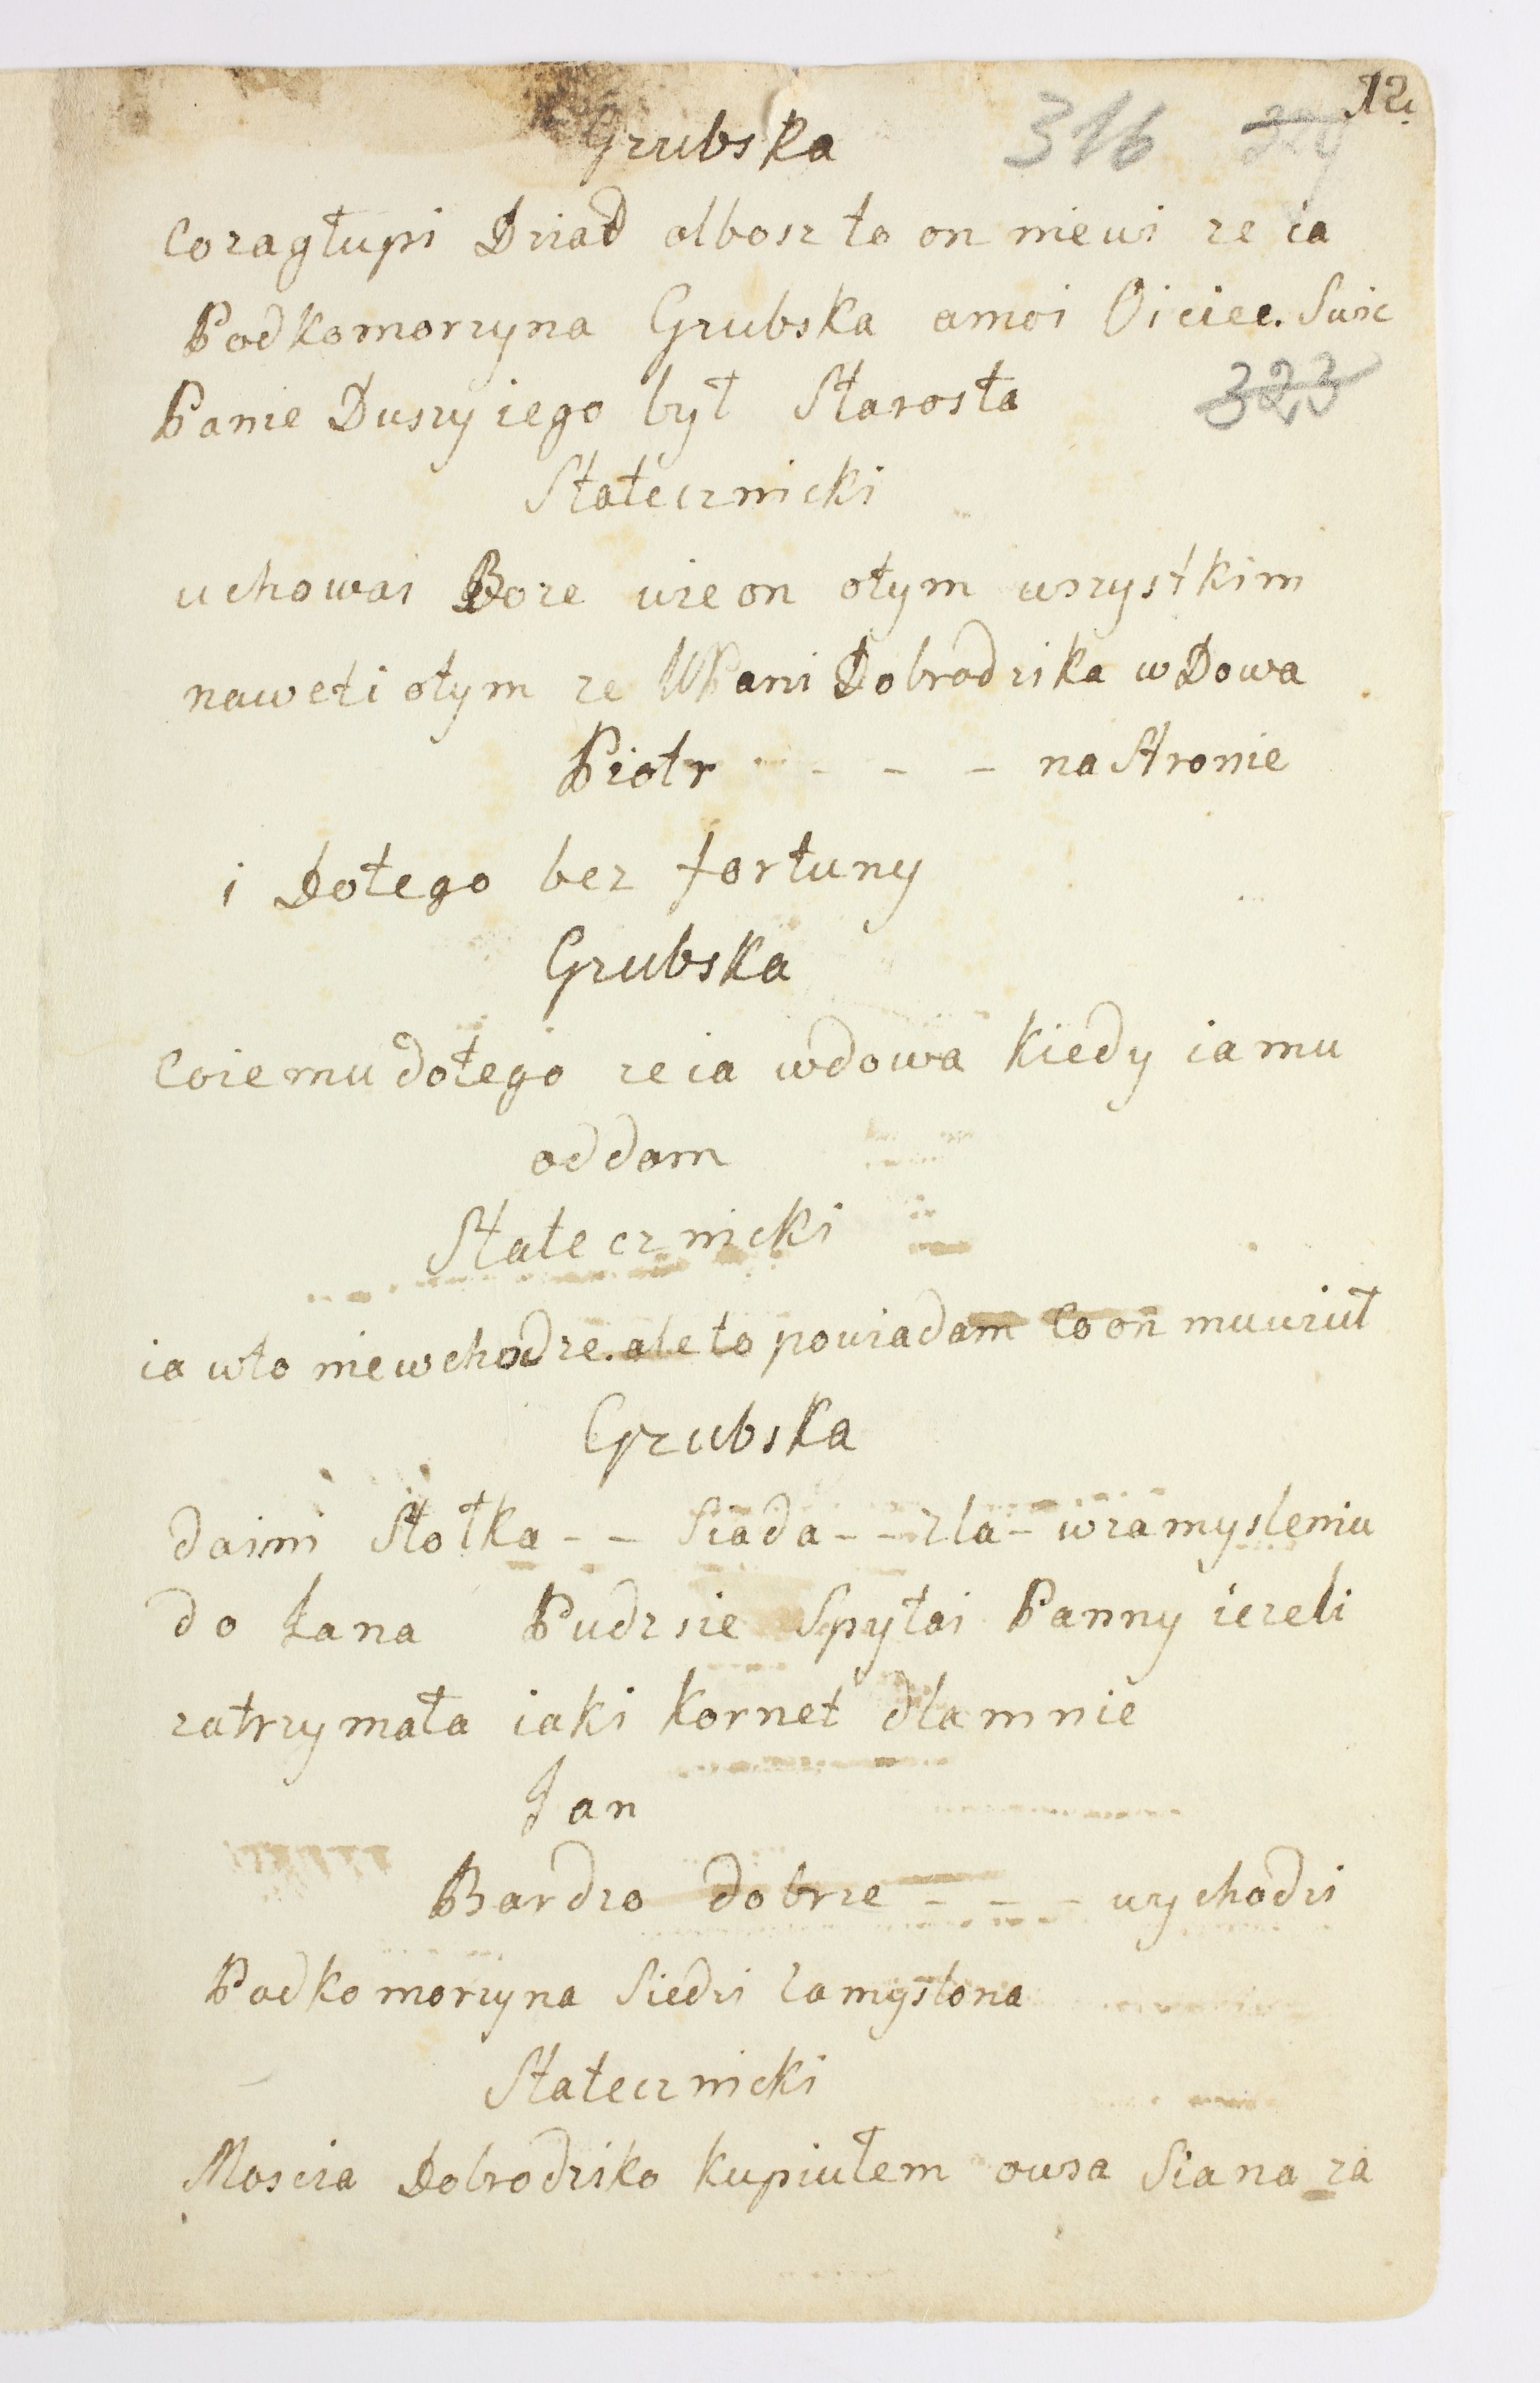 12.
Grubska 316 324
Coza głupi Dziad albosz to on niewi ze ia
Podkomorzyna Grubska amoi Oiciec. Swic
Panie Duszy iego był Starosta
323
Statecznicki
uchowai Boze wie on otym wszystkim
naweti otym ze WPani Dobrodzika wDowa
Piotr - - - - na Stronie
i Dotego bez fortuny
Grubska
Coiemu dotego zeia wdowa kiedy iamu
oddam
Statecznicki
ia wto niewchodze. ale to powiadam Coon muwiuł
Grubska
daimi Stołka - - Siada - - zla - wzamysleniu
do Jana Pudzsie Spytai Panny iezeli
zatrzymała iaki kornet dlamnie
Jan
Bardzo dobrze - - - wychodzi
Podkomorzyna Siedzi zamyslona
Statecznicki
Moscia Dobrodziko kupiułem owsa Siana za